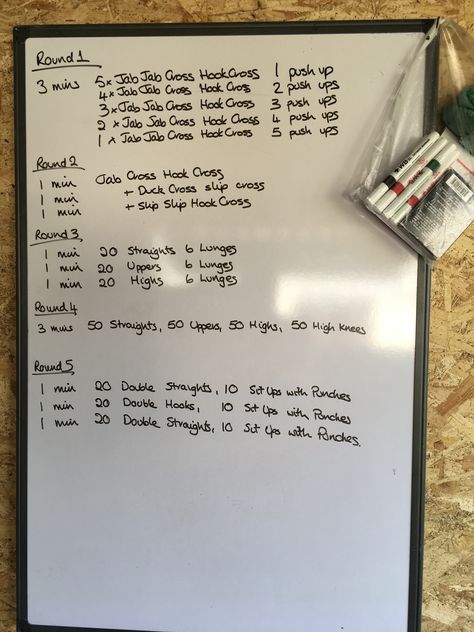 Round 1
3 mins 5x Jab Jab Cross Hook Cross 1 push up
4x Jab Jab Cross Hook Cross 2 push ups
3x Jab Jab Cross Hook Cross 3 push ups
2 x Jab Jab Cross Hook Cross 4 push ups
1 x Jab Jab Cross Hook Cross 5 push ups
Round 2
1 min Jab Cross Hook Cross
1 min + Duck Cross slip cross
1 min + Slip Slip Hook Cross
Round 3
1 min 20 Straights 6 Lunges
1 min 20 Uppers 6 Lunges
1 min 20 Highs 6 Lunges
Round 4
3 mins 50 Straights, 50 Uppers, 50 Highs, 50 High Knees
Round 5
1 min 20 Double Straights, 10 Sit Ups with Punches
1 min 20 Double Hooks, 10 Sit Ups with Punches
1 min 20 Double Straights, 10 Sit Ups with Punches.